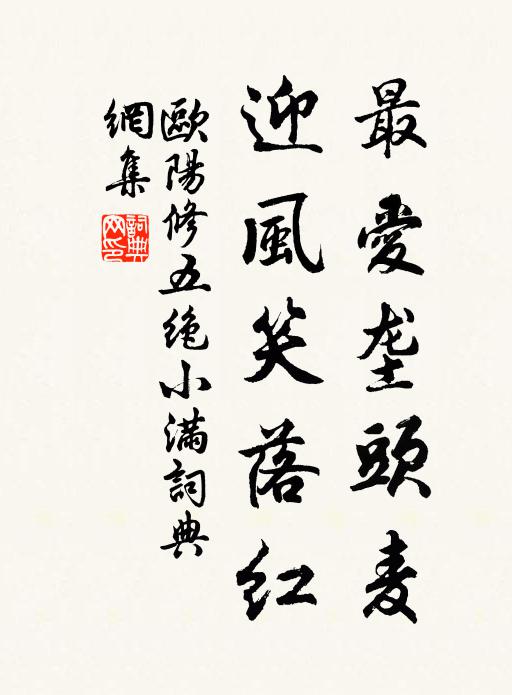 最愛垄頭麦
迎風笑落红
歐陽修五绝小满詞典
網集
詞典
网印